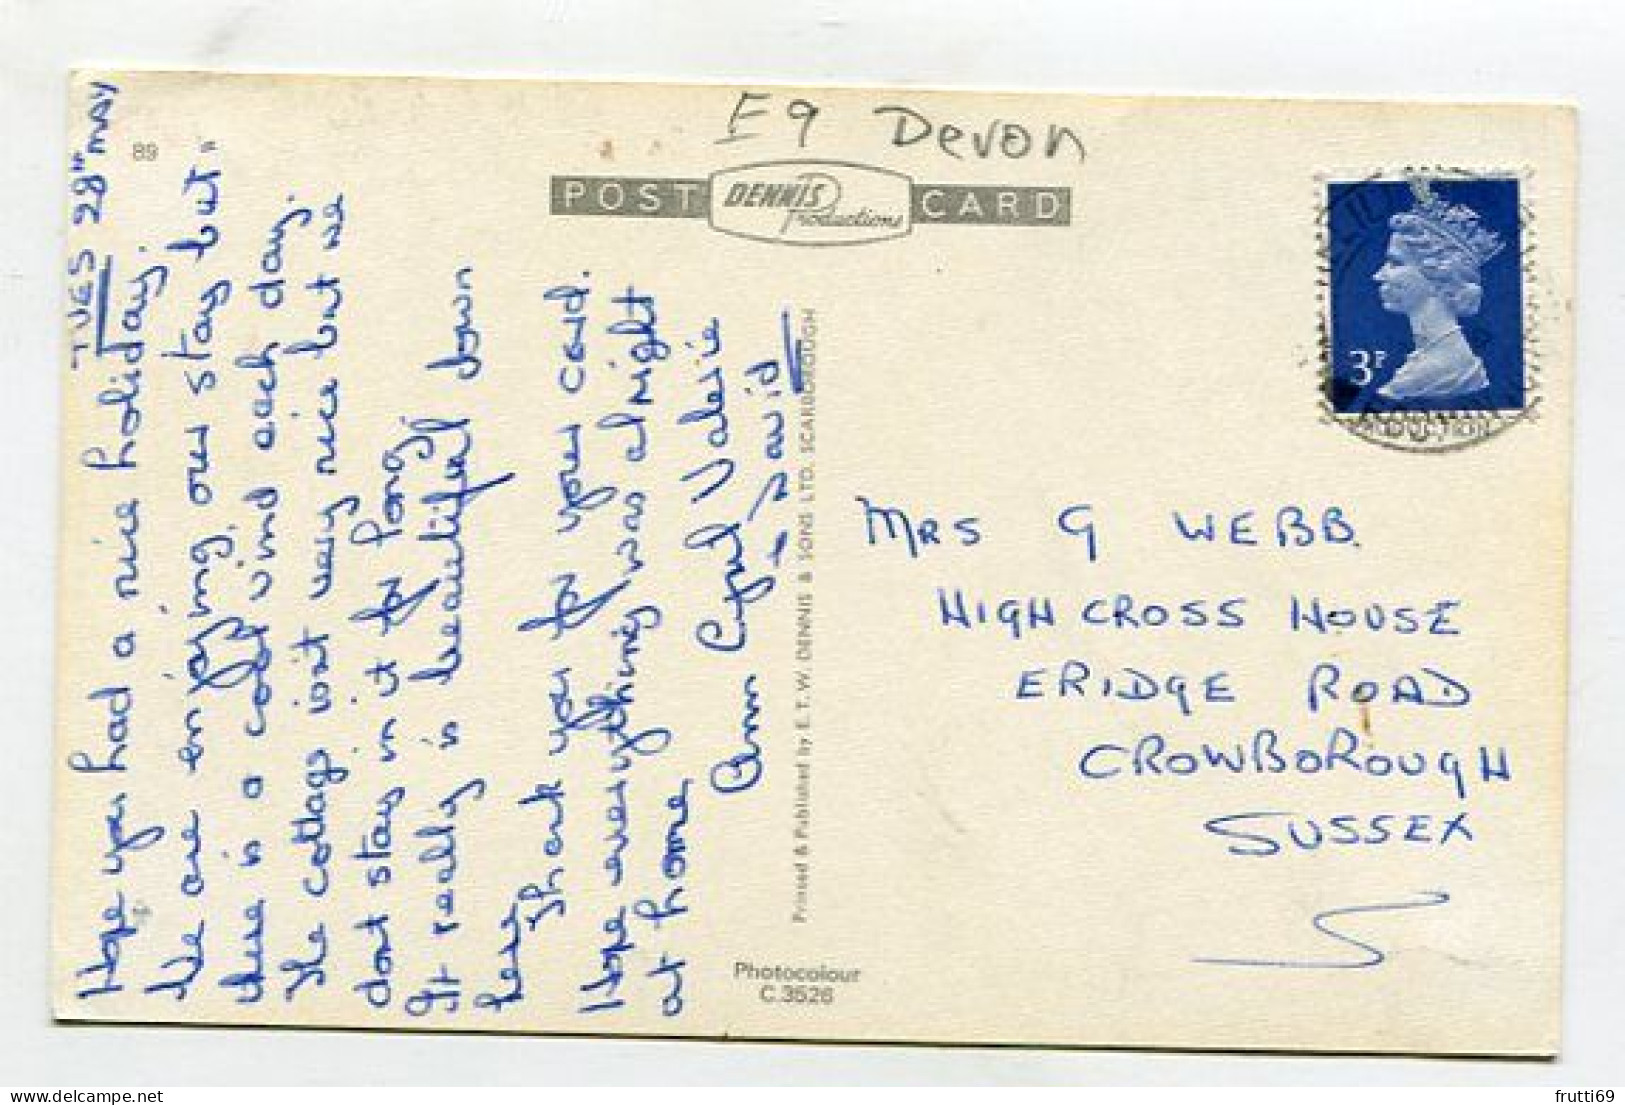 E9 Devon
POST DENNIS Productions CARD
89
TUES 28TH MAY
Hope you had a nice holiday.
We are enjoying our stay but
there is a cold wind each day.
The cottage isnt very nice but we
dont stay in it for long.
It really is beautiful down
here
Thank you for your card.
Hope everything was alright
at home
Ann Cyril Valerie
+ David
Printed & Published by E. T. W. DENNIS & SONS LTD. SCARBOROUGH
Photocolour
C.3526
3P
MRS G WEBB.
HIGH CROSS HOUSE
ERIDGE ROAD
CROWBOROUGH
SUSSEX
frutti69